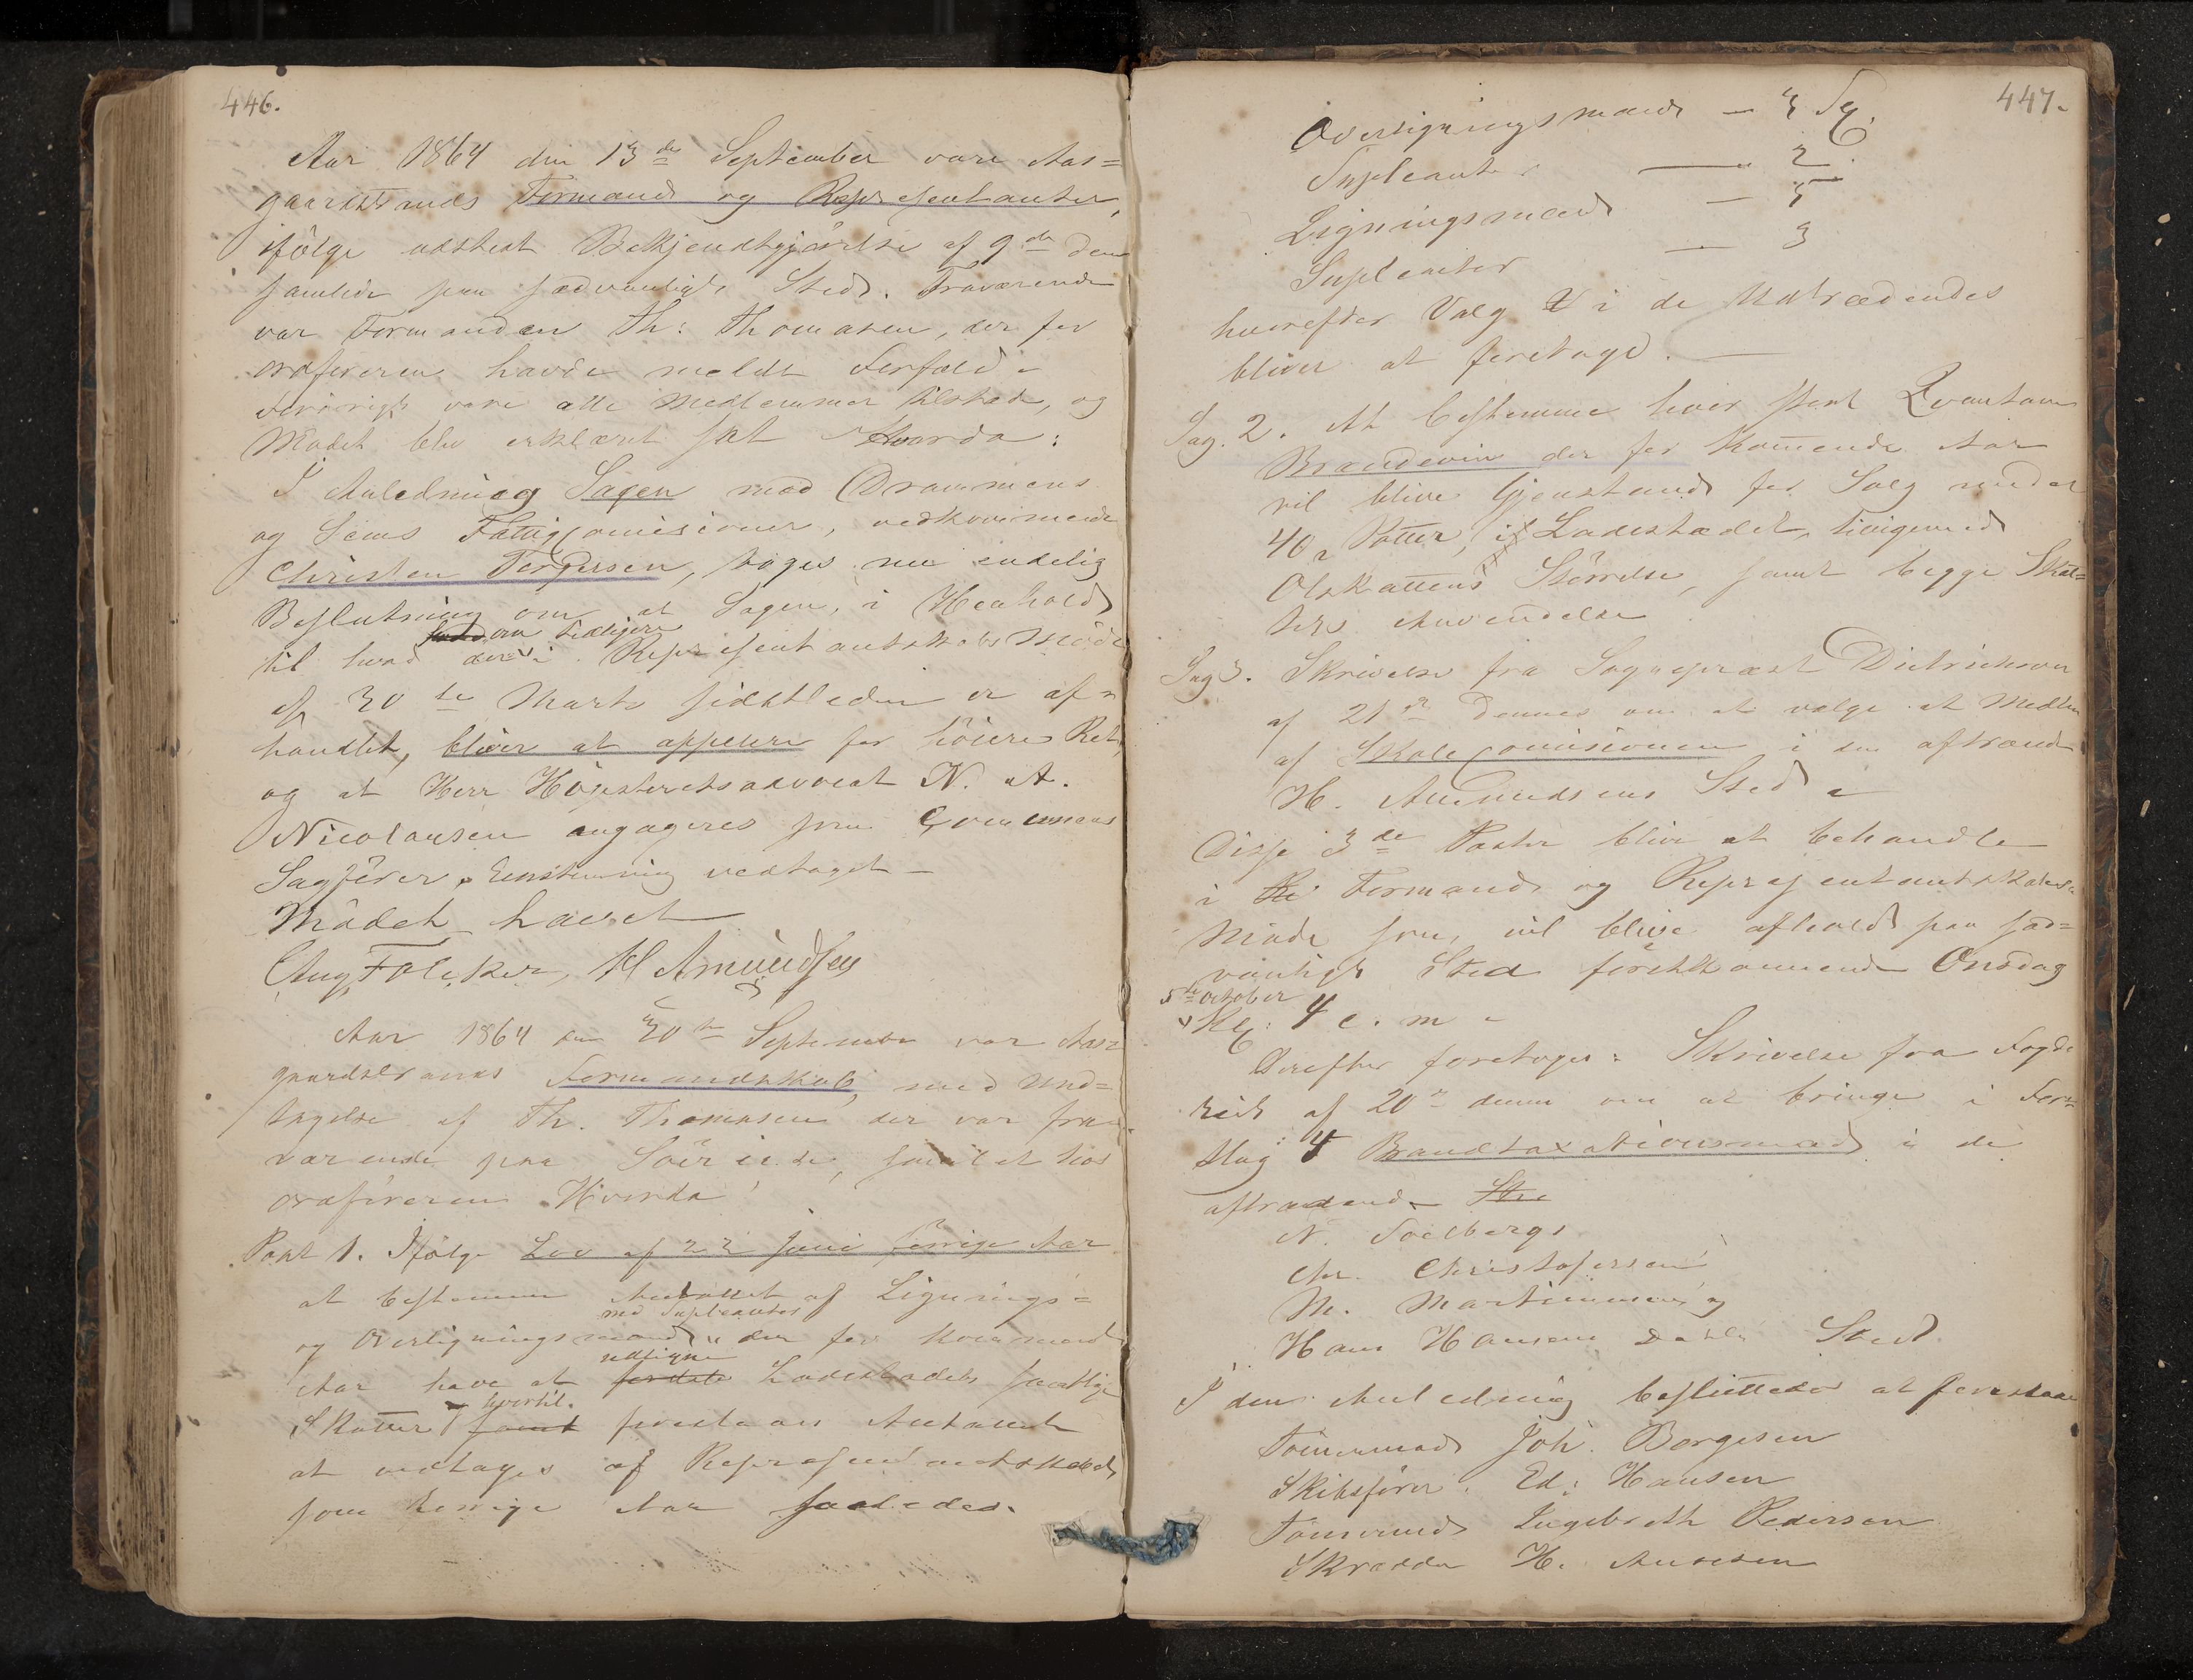 446.
Aar 1864 den 13de September vare Aas=
gaardstrands Formænd og Repræsentanter,
ifölge udstedt Bekjendtgjörelse af 9de dens
samlede paa sædvanligt Sted. Fraværende
var Formanden Th: Thomasen, der for
ordföreren havde meldt Forfald.
Forövrigt vare alle Medlemmer tilstede, og
Mödet blev erklæret sat Hvorda:
I Anledning Sagen mod Drammens
og Sems Fattigcomisioner, vedkommende
Christen Torgersen, toges nu endelig
Beslutning om at Sagen, i Henhold
om tidligere
til hvad der i Repræsentantskabs Möde
af 30te Marts sidstleden er af=
handlet, bliver at appelere for höiere Ret,
og at Herr Höiesteretsadvocat N. A.
Nicolausen engageres som Communens
Sagförer. Eenstemmig vedtaget
Mödet hævet
Aug Fölcker, H Amundsen
Aar 1864 den 30te September var Aas=
gaardstrands Formandskab, med Und=
tagelse af Th. Thomasen der var fra=
værende paa Söereise, samlet hos
ordföreren Hvorda
Post 1. Ifölge Lov af 22 Juni forrige Aar
at bestemme Antallet af Lignings=
med Supleanter
og Overligningsmænd der for kommende
udligne
Aar have at fordele Ladestædets samtlige
hvortil
Skatter samt forestaaes Antallet
at vedtages af Repræsentantskabet
som forrige Aar saaledes.
447.
Overligningsmænd — 3 St.
Supleanter — 2
Ligningsmænd — 5
Supleanter — 3
hvorefter Valg i de Udtrædendes
bliver at foretage.
Sag. 2. At bestemme hvor stort Qvantum
Brændeviin der for kommende Aar
vil blive Gjenstand for Salg under
40 Potter, i Ladestædet, tilligemed
Ölskattens Störrelse, samt begge Skat=
ters Anvendelse
Sag 3. Skrivelse fra Sognepræst Dietrichson
af 21de dennes om at vælge et Medlem
af Skolecomisionen i den aftrædende
H. Amundsens Sted
Disse 3de Poster blive at behandle
i Formænd og Repræsentantskabs
Möde som vil blive afholdt paa sæd=
vanligt Sted förstkommende Onsdag
5te October
Kl: 4 e. m
Derefter foretoges: Skrivelse fra Fogde
af 20de dennes om at bringe i For=
slag 4 Brandtaxationsmænd i de
aftrædende Sted
N. Solbergs
Chr. Christofersens
M. Martinsens og
Hans Hansens Sted
I den Anledning besluttedes at forestaae
Tömmermand Joh. Borgesen
Skibsförer Ed: Hansen
Tömermand Ingebreth Pedersen
Skrædder H. Andersen